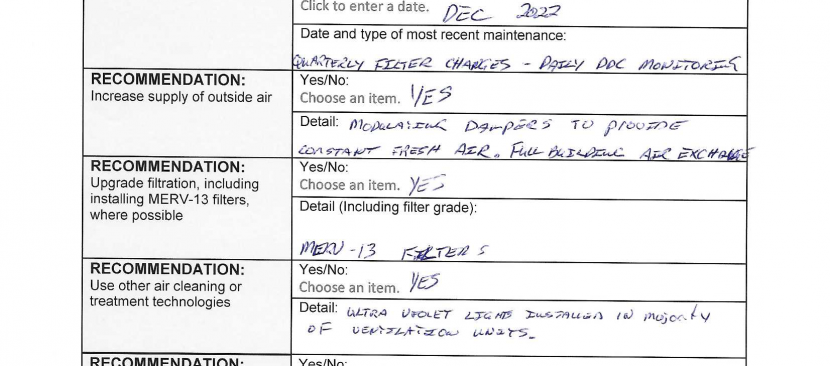 Click to enter a date. DEC 2022
Date and type of most recent maintenance:
QUARTERLY FILTER CHARGES - DAILY DDC MONITORING
RECOMMENDATION:
Increase supply of outside air
Yes/No:
Choose an item. YES
Detail: MODULATING DAMPERS TO PROVIDE
CONSTANT FRESH AIR. FULL BUILDING AIR EXCHANGE
RECOMMENDATION:
Upgrade filtration, including
installing MERV-13 filters,
where possible
Yes/No:
Choose an item. YES
Detail (Including filter grade):
MERV-13 FILTERS
RECOMMENDATION:
Use other air cleaning or
treatment technologies
Yes/No:
Choose an item. YES
Detail: ULTRA VIOLET LIGHTS INSTALLED IN majority
OF VENTILATION UNITS.
RECOMMENDATION:
Yes/No: